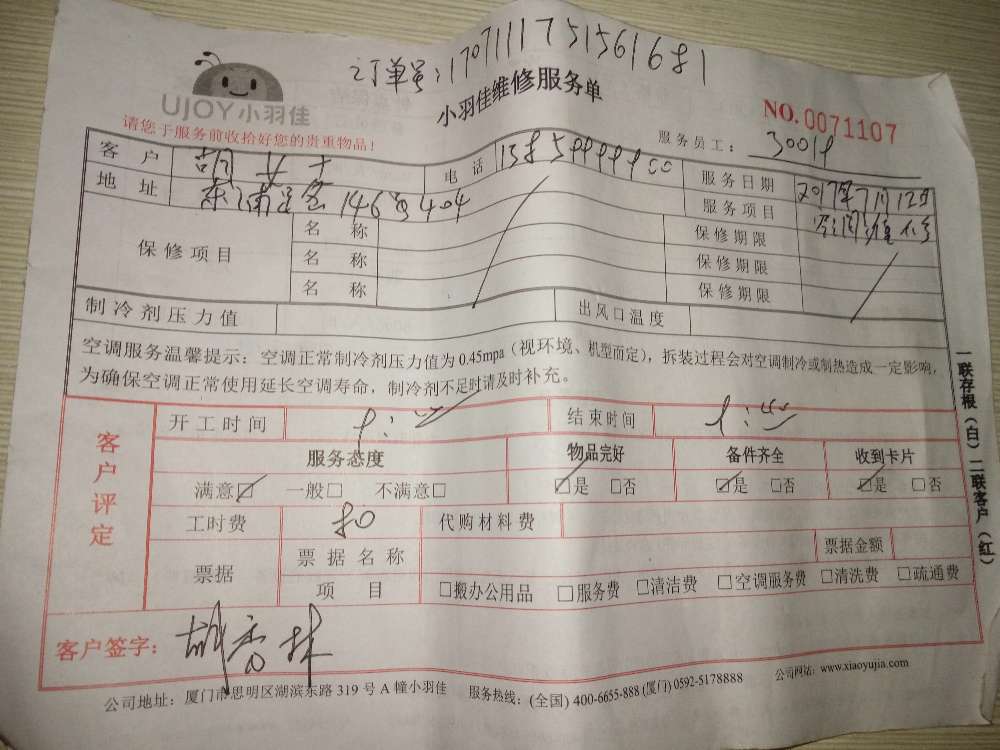 订单号:1707111751561681
UJOY小羽佳
小羽佳维修服务单
NO.0071107
请您于服务前收拾好您的贵重物品!
服务员工:
客户 胡女士 电话 服务日期 2017年7月12日
地址 146号404 服务项目 空调维修
保修项目 名称 保修期限
名称 保修期限
名称 保修期限
制冷剂压力值 出风口温度
空调服务温馨提示:空调正常制冷剂压力值为0.45mpa(视环境、机型而定),拆装过程会对空调制冷或制热造成一定影响,
为确保空调正常使用延长空调寿命,制冷剂不足时请及时补充。
客户评定
开工时间 结束时间
服务态度 物品完好 备件齐全 收到卡片
满意☑ 一般□ 不满意□ ☑是 □否 ☑是 □否 ☑是 □否
工时费 80 代购材料费
票据 票据名称 票据金额
项目 □搬办公用品 □服务费 □清洁费 □空调服务费 □清洗费 □疏通费
客户签字:
公司地址:厦门市思明区湖滨东路319号A幢小羽佳 服务热线:(全国)400-6655-888(厦门)0592-5178888 公司网站:www.xiaoyujia.com
一联存根(白)二联客户(红)